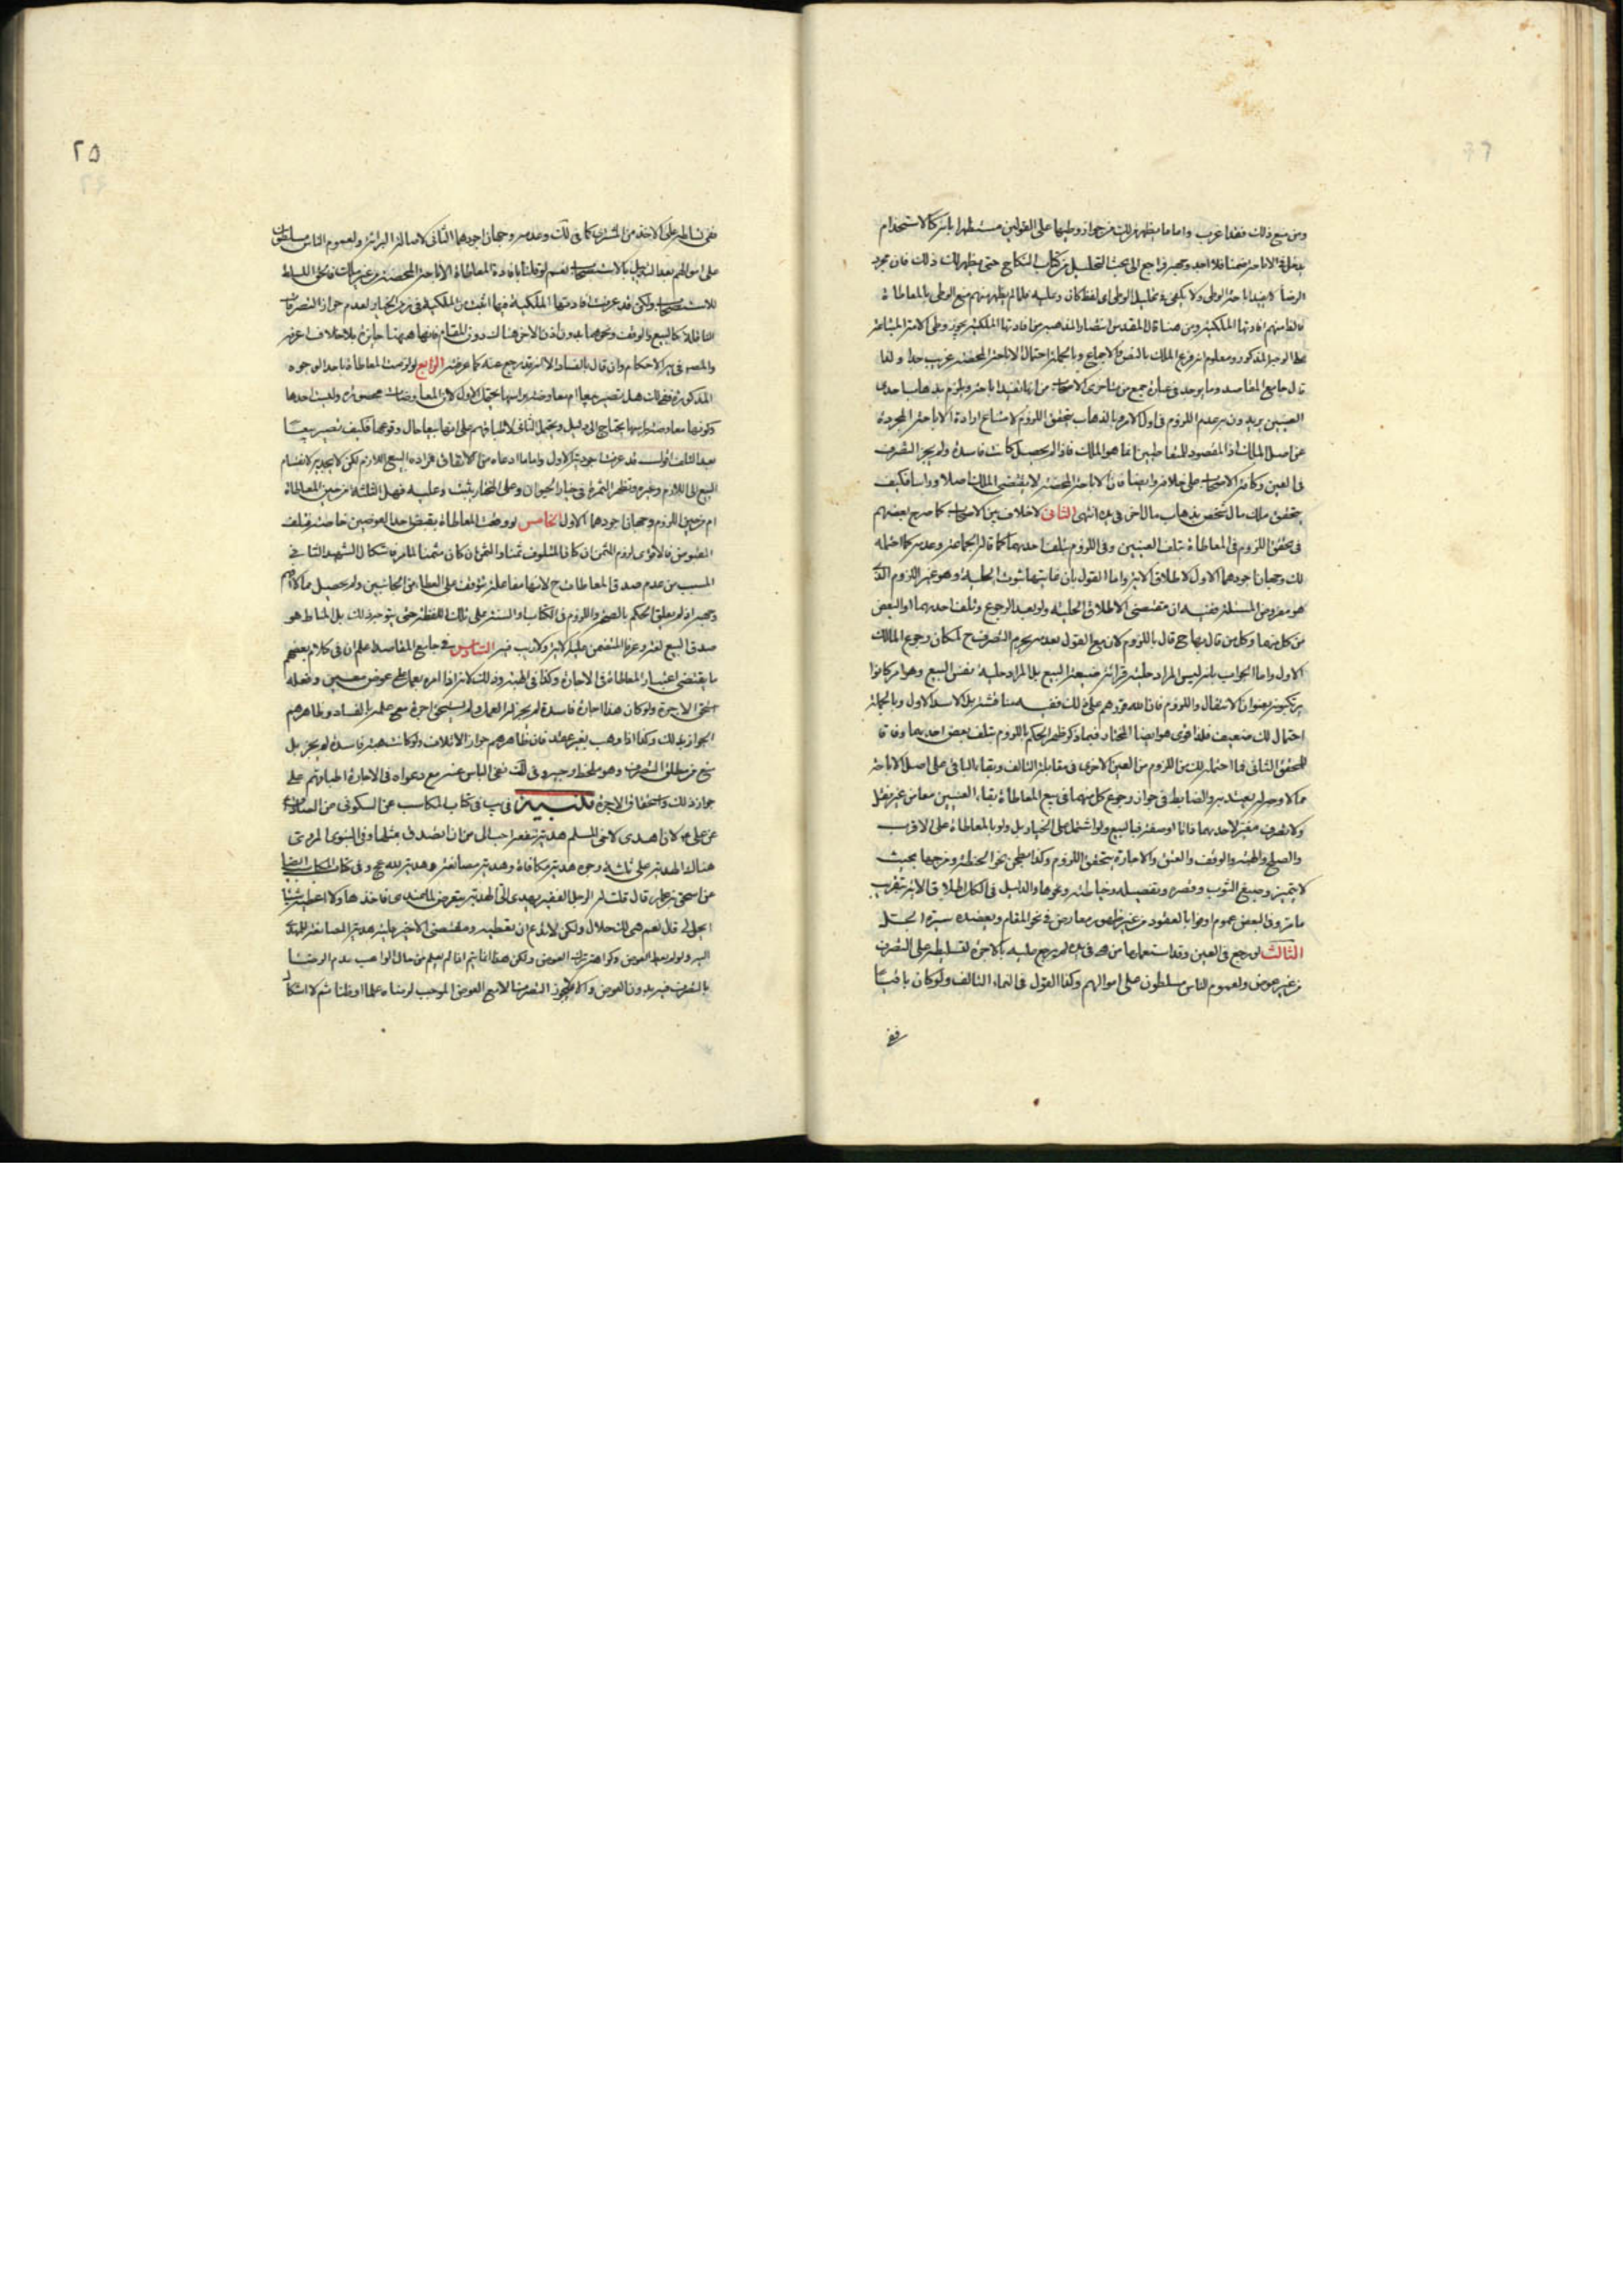 ومن منع ذلك فقد اغرب واما ما يظهر من لك من جواز وطيها على القولين مستظهرا بانه كالاستخدام
يدخل في الاباحة ضمنا فلا اجد وجهه راجع الى بحث التحليل من كتاب النكاح حتى يظهر لك ذلك فان مجرد
الرضا لا يفيد اباحة الوطى ولا يكفى في تحليل الوطى اى لفظ كان وعليه فما لم يظهر منهم منع الوطى بالمعاطاة
فالظاهر منهم افادتها الملكية ومن هنا قال المقدس انتصارا لمذهبه من افادتها الملكية يجوز وطى الامة المبتاعة
على الوجه المذكور ومعلوم انه فرع الملك بالنص والاجماع وبالجملة احتمال الاباحة المحضة غريب جدا ولذا
قال جامع المقاصد وما يوجد في عبارة جمع من متاخرى الاصحاب من انها تفيد اباحة ويلزم بذهاب احدى
العينين يريدون به عدم اللزوم في اول الامر وبالذهاب يتحقق اللزوم لامتناع ارادة الاباحة المجردة
عن اصل الملك اذ المقصود للمتعاطيين انما هو الملك فاذا لم يحصل كانت فاسدة ولم يجز التصرف
في العين وكافة الاصحاب على خلافه وايضا فان الاباحة المحضة لا يقتضى الملك اصلا وراسا فكيف
يتحقق ملك مال شخص بذهاب مال اخر في يده انتهى الثاني لا خلاف بين الاصحاب كما صرح بعضهم
في تحقق اللزوم في المعاطاة بتلف العينين وفي اللزوم بتلف احديهما كما قاله الجماعة وعدمه كما احتمله
لك وجهان اجودهما الاول لاطلاق الاية واما القول بان غايتها ثبوت الحلية وهو غير اللزوم الذى
هو مفروض المسئلة ففيه ان مقتضى الاطلاق الحلية ولو بعد الرجوع وتلف احديهما او البعض
من كل منهما وكل من قال بها ح قال باللزوم لان مع القول بعدمه يحرم التصرف ح لمكان رجوع المالك
الاول واما الجواب بانه ليس المراد حلية قرائة صيغة البيع بل المراد حلية نفس البيع وهو امر كانوا
يرتكبونه بعنوان الانتقال واللزوم فان الله قررهم على ذلك ففيه
احتمال لك ضعيف فلذا قوى هو ايضا المختار فيما ذكر ظهر الحكم باللزوم بتلف بعض احديهما وفاقا
للمحقق الثاني فما احتمله لك من اللزوم من العين الاخرى في مقابلة التالف وبقاء الباقى على اصل الاباحة
مما لا وجه له يعتد به والضابط في جواز رجوع كل منهما في بيع المعاطاة بقاء العينين معا من غير نقل
ولا تصرف مغير لاحديهما فاتا او صفة فبا لبيع ولو اشتمل على الخيار بل ولو بالمعاطاة على الاقرب
والصلح والهبة والوقف والعتق والاجارة يتحقق اللزوم وكذا بطحن نحو الحنطة ومزجها بحيث
لا يتميز وصبغ الثوب وقصره وتفصيله وخياطته ونحوها والدليل في الكل اطلاق الاية بتقريب
ما مر وفي البعض عموم اوفوا بالعقود من غير ظهور معارض في نحو المقام ويعضده سيرة
الثالث لو رجع في العين وقد استعملها من هى في يده لم يرجع عليه بالاجرة لتسليطه على التصرف
من غير عوض ولعموم الناس مسلطون على اموالهم وكذا القول في النماء التالف ولو كان باقيا
ففى
٢٥
ففى تسلطه على الاخذ من المشترى كما في لك وعدمه وجهان اجودهما الثاني لاصالة البرائة ولعموم الناس مسلطون
على اموالهم بعد التنزيل بالاستصحاب نعم لو قلنا بافادة المعاطاة الاباحة المحضة من غير ملك
للاستصحاب ولكن قد عرفت افادتها الملكية فيها اثبت من الملكية في زمن الخيار لعدم جواز التصرفات
الناقلة كالبيع والوقف ونحوهما بدون اذن الاخر هناك دون المقام فانها هيهنا جايزة بلا خلاف اعرفه
والمصه في يه الاحكام وان قال بالفساد الا انه قد رجع عنه كما عرفت الرابع لو لزمت المعاطاة باحد الوجوه
المذكورة فهل تصير بيعا ام معاوضة براسها يحتمل الاول لان المعاوضات محصورة وليست احدها
وكونها معاوضة براسها يحتاج الى دليل ويحتمل الثاني لاطباقهم على انها ليست بيعا حال وقوعها فكيف تصير بيعا
بعد التلف اقول قد عرفت جودة الاول واما ما ادعاه من الاتفاق فمراده البيع اللازم لكن لا يجديه لانقسام
البيع الى اللازم وغيره وتظهر الثمرة في خيار الحيوان وعلى المختار يثبت وعليه فهل الثلثة من حين المعاطاة
ام من حين اللزوم وجهان اجودهما الاول الخامس لو وقعت المعاطاة بقبض احد العوضين خاصة فتلف
المقبوض فالاقوى لزوم الثمن ان كان المتلوف ثمنا والثمن ان كان مثمنا لما مر فاشكال الشهيد الثاني
المسبب من عدم صدق المعاطاة ح لانها مفاعلة يتوقف على العطاء من الجانبين ولم يحصل مما لا
وجه له اذ لم يعلق الحكم بالصحة واللزوم في الكتاب او السنة على تلك اللفظة حتى يتوجه ذلك بل المناط هو
صدق البيع لغة وعرفا المتفحص عليه الاية ولا ريب فيه السادس في جامع المقاصد اعلم ان في كلام بعضهم
ما يقتضى اعتبار المعاطاة في الاجارة وكذا في الهبة وذلك لانه اذا امره بعمل على عوض معين وفعله
استحق الاجرة ولو كان هذا اجارة فاسدة لم يجز له العمل ولم يستحق اجرة مع علمه بالفساد وظاهرهم
الجواز بذلك وكذا اذا وهب بغير عقد فان ظاهرهم جواز الاتلاف ولو كانت هبة فاسدة لم يجز بل
منع من مطلق التصرف وهو ملحظ وجيه وفي لك نفى الباس عنه مع دعواه في الاجارة اطباقهم على
جواز ذلك واستحقاق الاجرة تنبيه في يب في كتاب المكاسب عن السكونى عن الصادق
عن على لان اهدى لاخى المسلم هدية تنفعه احب الى من ان اتصدق بمثلها وفي النبوى المروى
هناك الهدية على ثلثة وجوه هدية مكافاة وهدية مصانعة وهدية لله عج وفي كتاب المكاسب ايضا
عن اسحق بن عمار قال قلت له الرجل الفقير يهدى الى الهدية يتعرض لما عندى فاخذها ولا اعطيه شيئا
ايحل لى قال نعم هى لك حلال ولكن لا تدع ان تعطيه ومقتضى الاخير حلية هدية المصانعة للمهدى
اليه ولو لم يعط العوض وكراهة ترك العوض ولكن هذا انما يتم اذا لم يعلم من حال الواهب عدم الرضا
بالتصرف فيه بدون العوض والا فلا يجوز التصرف الا مع العوض الموجب لرضاه علما او ظنا ثم لا اشكال